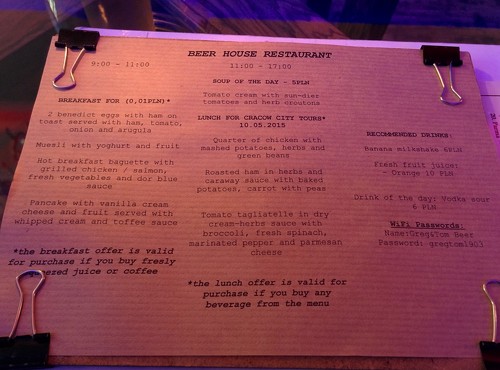 BEER HOUSE RESTAURANT
9:00 - 11:00
11:00 - 17:00
BREAKFAST FOR (0,01PLN)*
2 benedict eggs with ham on
toast served with ham, tomato,
onion and arugula
Muesli with yoghurt and fruit
Hot breakfast baguette with
grilled chicken / salmon,
fresh vegetables and dor blue
sauce
Pancake with vanilla cream
cheese and fruit served with
whipped cream and toffee sauce
*the breakfast offer is valid
for purchase if you buy fresly
juice or coffee
SOUP OF THE DAY - 5PLN
Tomato cream with sun-died
tomatoes and herb croutons
LUNCH FOR CRACOW CITY TOURS*
10.05.2015
Quarter of chicken with
mashed potatoes, herbs and
green beans
Roasted ham in herbs and
caraway sauce with baked
potatoes, carrot with peas
Tomato tagliatelle in dry
cream-herbs sauce with
broccoli, fresh spinach,
marinated pepper and parmesan
cheese
*the lunch offer is valid for
purchase if you buy any
beverage from the menu
RECOMMENDED DRINKS:
Banana milkshake 6PLN
Fresh fruit juice:
- Orange 10 PLN
Drink of the day: Vodka sour
6 PLN
WiFi Passwords:
Name:Greg&Tom Beer
Password:gregtom1903